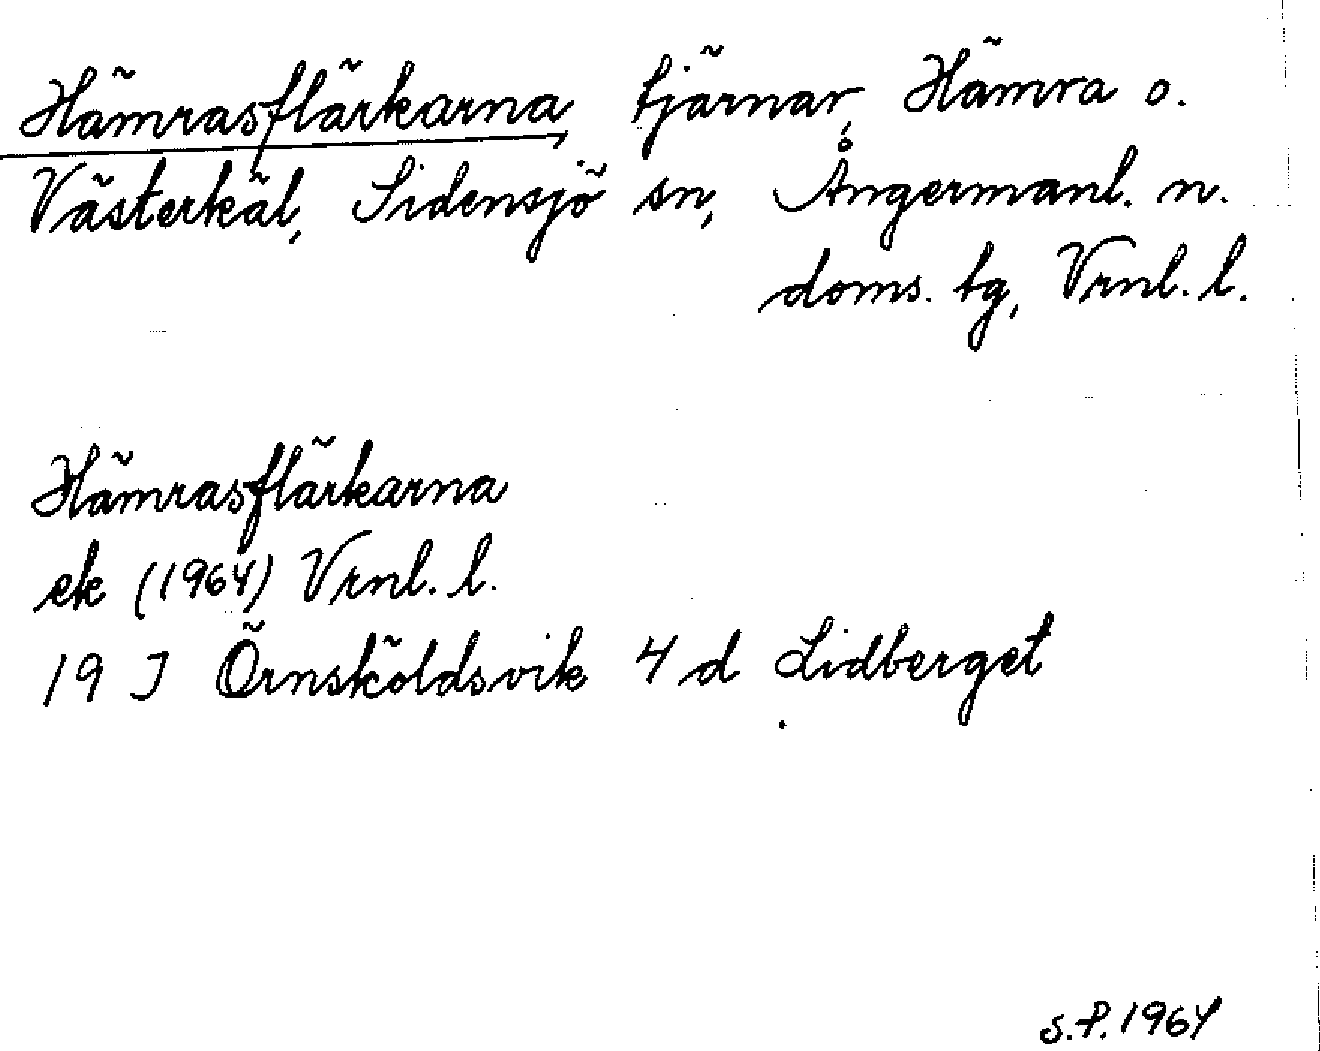 Hämrasflärkarna, tjärnar, Hämra o.
Västerkäl, Sidensjö sn, Ångermanl. n.
doms. tg, Vrnl. l.
Hämrasflärkarna
ek (1964) Vrnl. l.
19 J Örnsköldsvik 4 d Lidberget
S.P. 1964